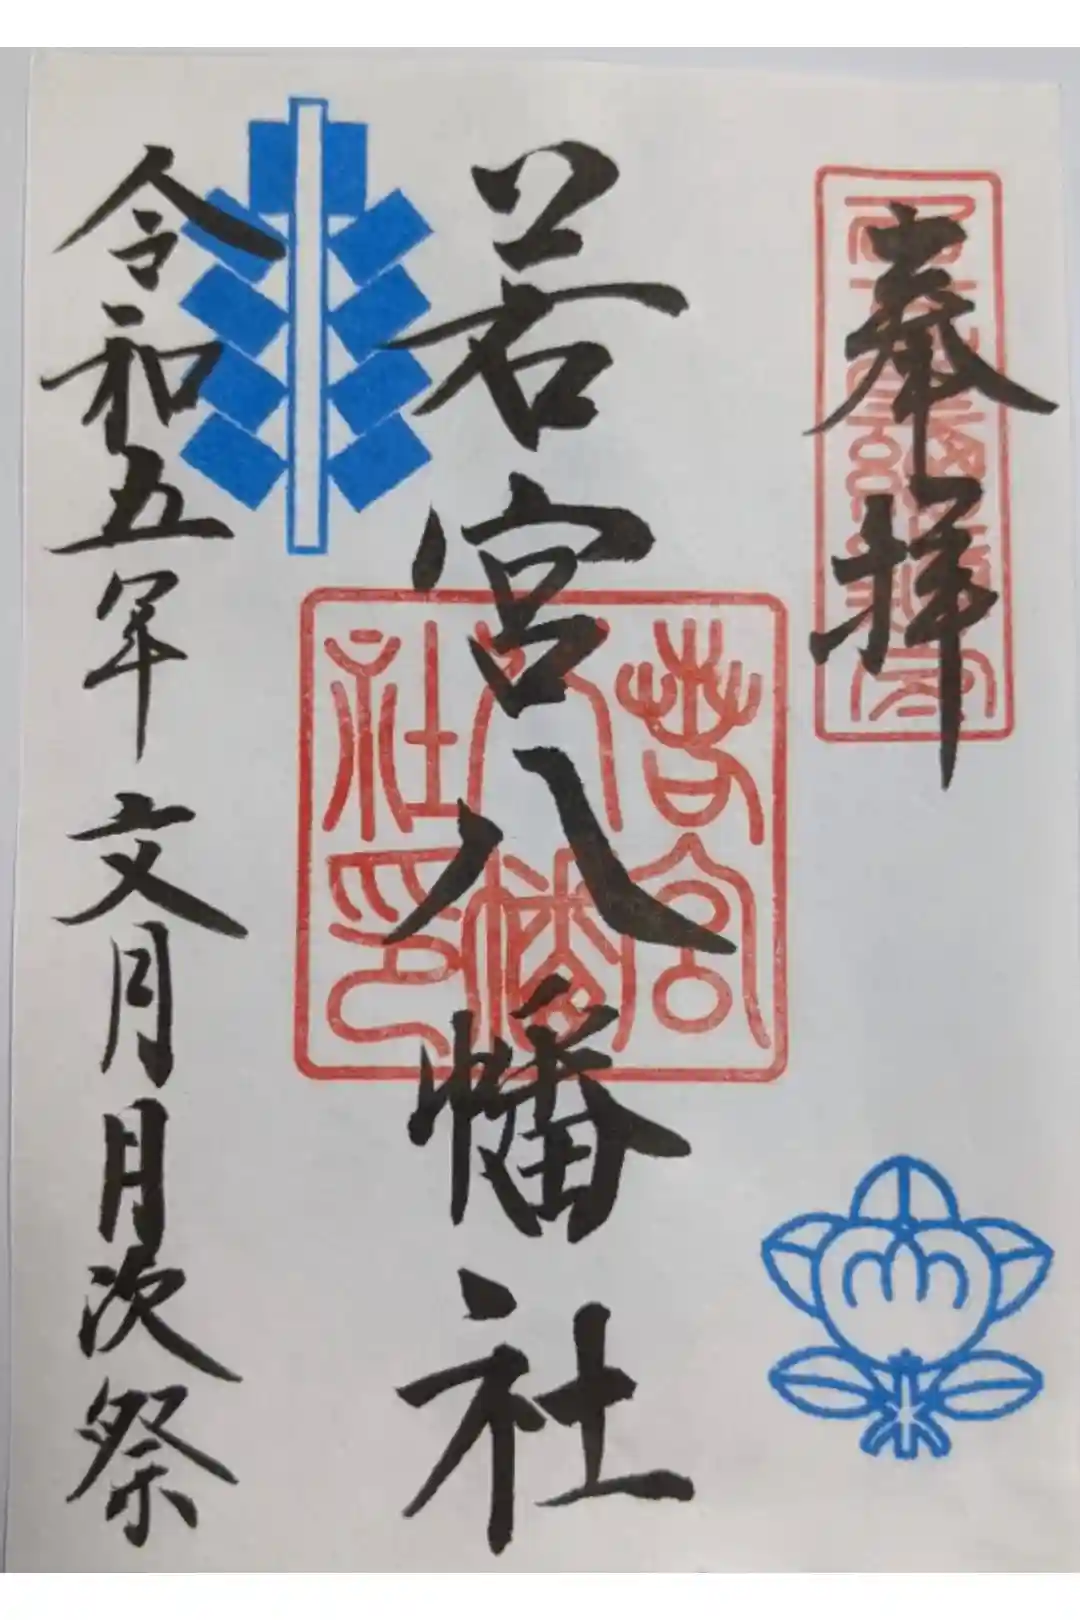 奉拝
若宮八幡社
令和五年 文月 月次祭
若宮
八幡
社印